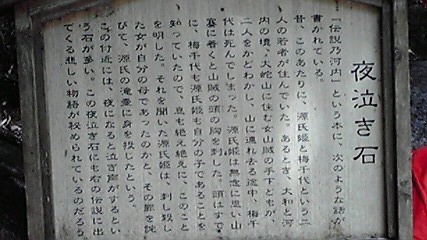 夜泣き石
「伝説乃河内」という本に、次のような話が
書かれている。
昔、このあたりに、源氏姫と梅千代という二
人の若者が住んでいた。あるとき、大和と河
内の境、大蛇山に住む女山賊の手下どもが、
二人をかどわかし、山に連れ去る途中、梅千
代は死んでしまった。源氏姫は無念に思い山
塞に着くと山賊の頭の胸を刺した。頭はすで
に、梅千代も源氏姫も自分の子であることを
知っていたので、息も絶え絶えに、このこと
を明した。それを聞いた源氏姫は、刺し殺し
た女が自分の母であったのかと、その罪を詫
びて、源氏の滝壷に身を投じたという。
この付近には、夜になると泣き声がするとい
う石が多い。この夜泣き石にも右の伝説に出
てくる悲しい物語が秘められているのだろう